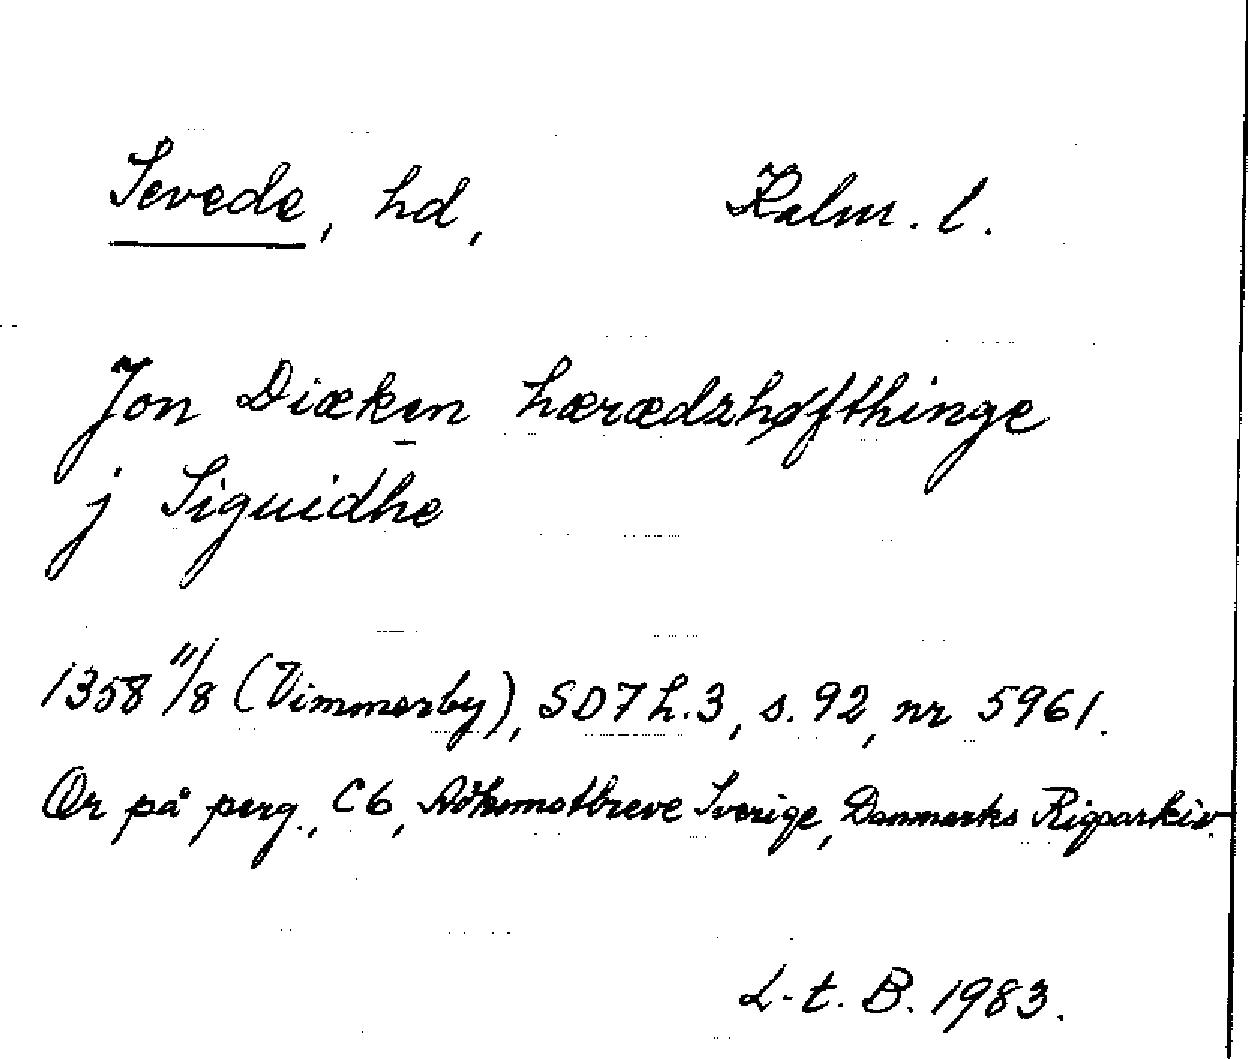 Sevede, hd, Kalm. l.
Jon Diækæn hærædzhøfthinge
j Siguidhe
1358 11/8 (Vimmerby), SD7 h.3, s. 92, nr 5961.
Or på perg., C6, Adkomstbreve Sverige, Danmarks Rigsarkiv.
L-t. B. 1983.